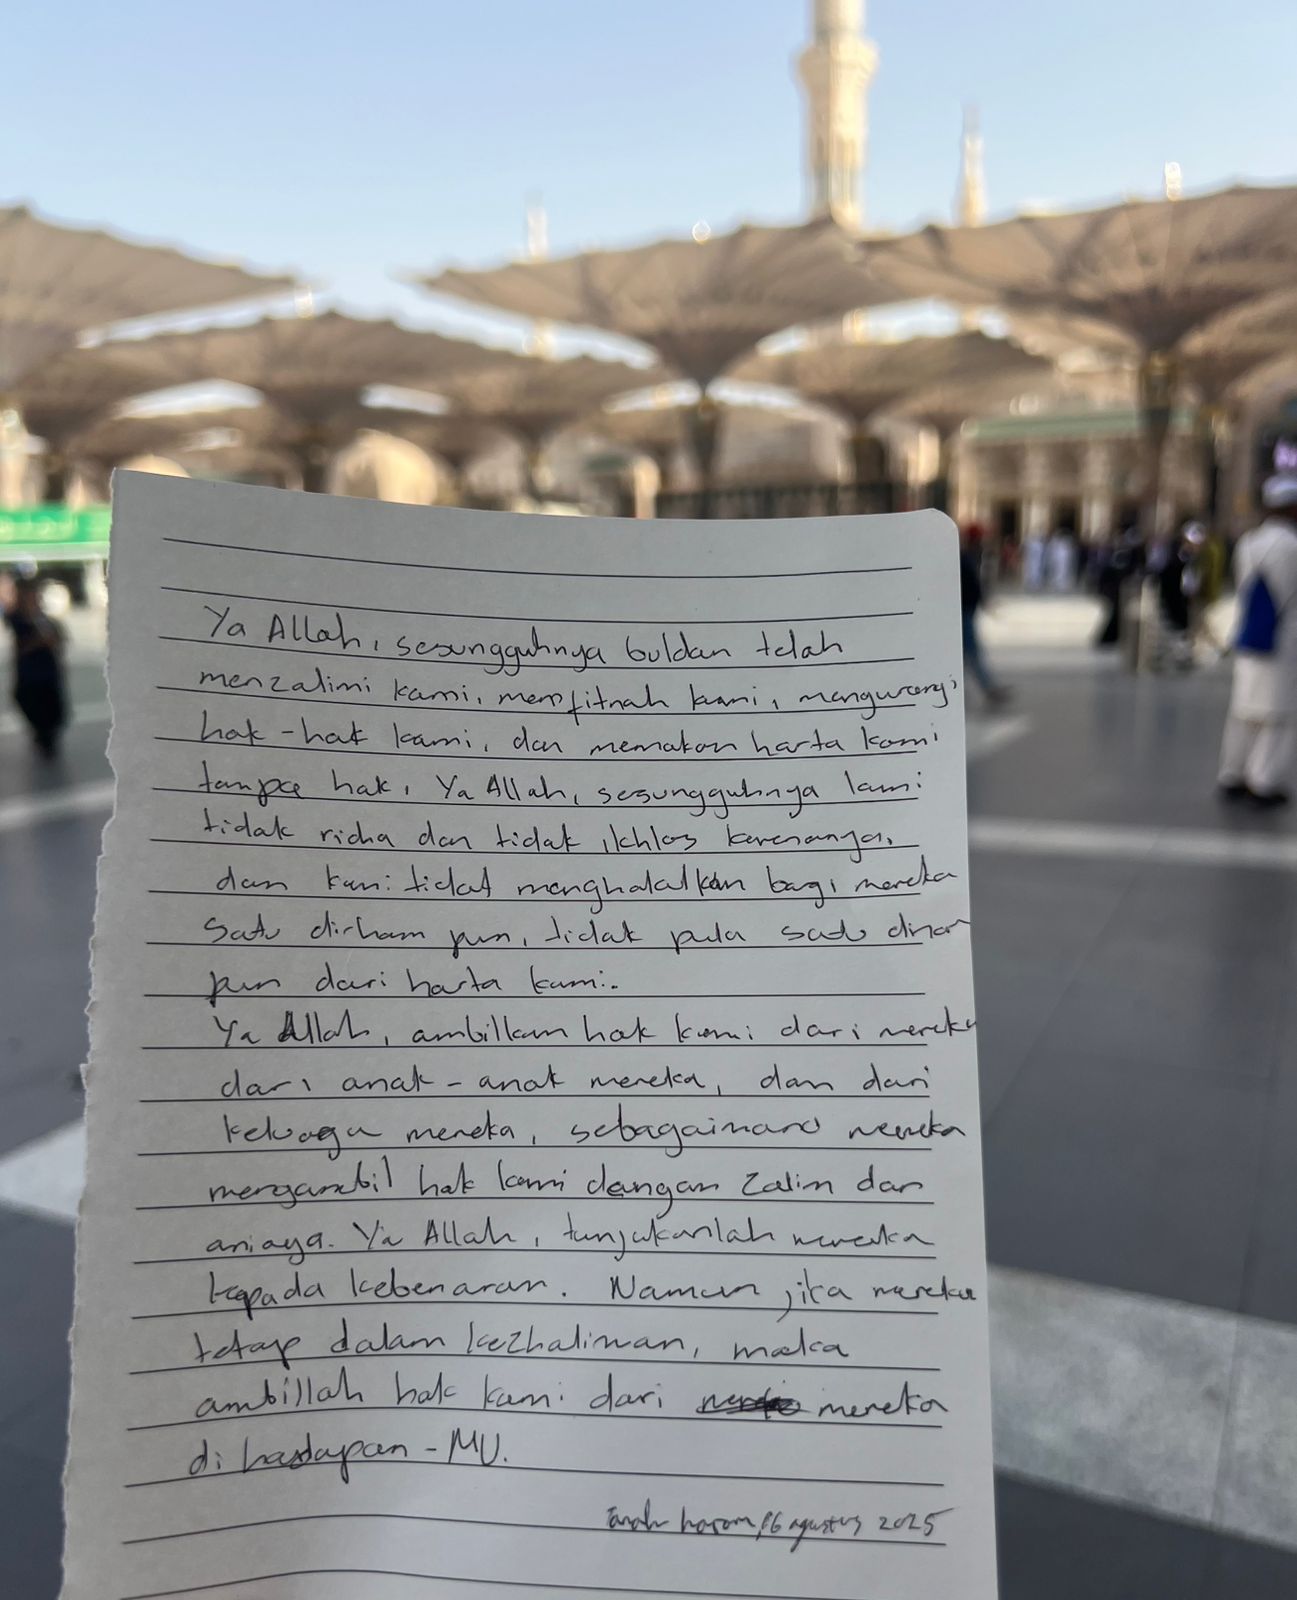 Ya Allah, sesungguhnya buldan telah
menzalimi kami, memfitnah kami, mengurangi
hak-hak kami, dan memakan harta kami
tanpa hak, Ya Allah, sesungguhnya kami
tidak ridha dan tidak ikhlas karenanya,
dan kami tidak menghalalkan bagi mereka
satu dirham pun, tidak pula satu dinar
pun dari harta kami.
Ya Allah, ambilkan hak kami dari mereka
dari anak-anak mereka, dan dari
keluarga mereka, sebagaimana mereka
mengambil hak kami dengan zalim dan
aniaya. Ya Allah, tunjukanlah mereka
kepada kebenaran. Namun jika mereka
tetap dalam kezhaliman, maka
ambillah hak kami dari mereka
di hadapan-MU.
Tanah haram, 6 agustus 2025